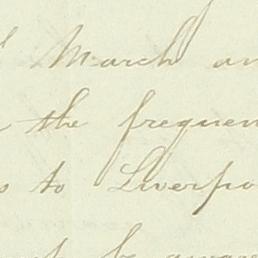 March an
the frequen
to Liverpo
be